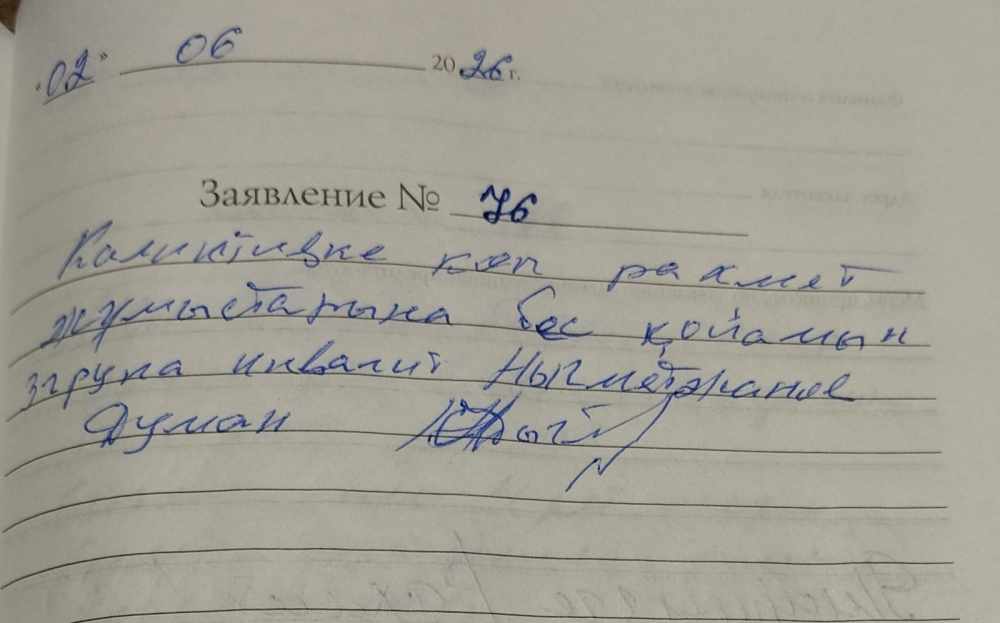 "02" 06 2026 г.
Заявление № 76
Каликтивке коп рахмет
жумыстарына бес қойамын
3 група инвалит Нығметжанов
Думан